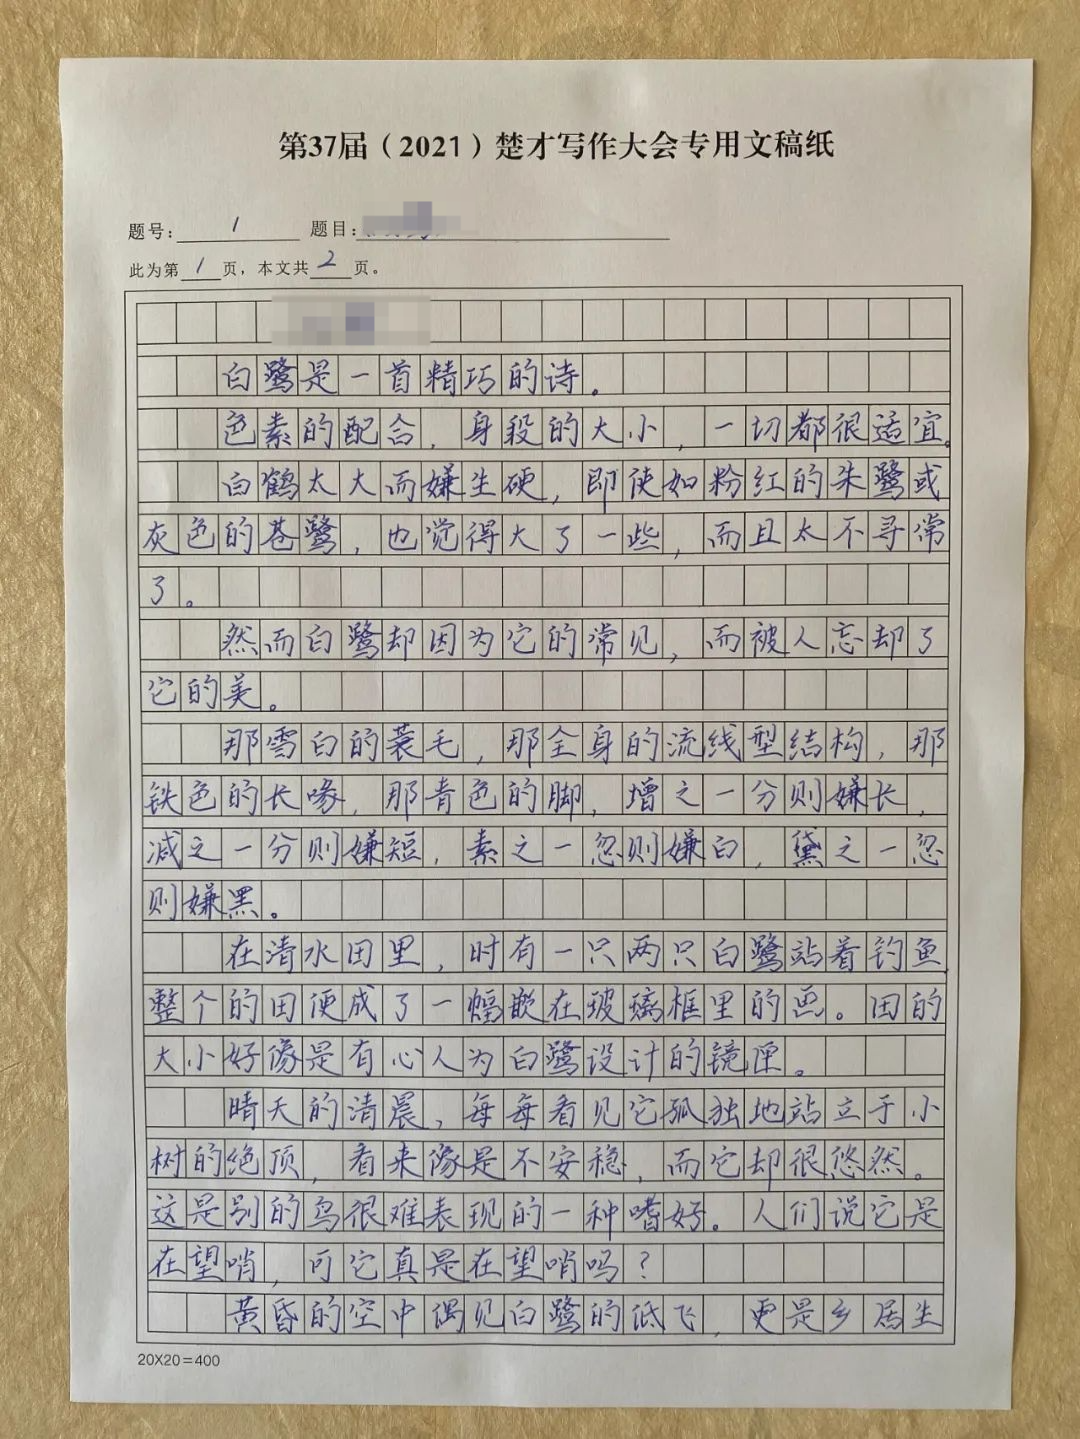 第37届（2021）楚才写作大会专用文稿纸
题号：1 题目：
此为第1页，本文共2页。
白鹭是一首精巧的诗。
色素的配合，身段的大小，一切都很适宜。
白鹤太大而嫌生硬，即使如粉红的朱鹭或
灰色的苍鹭，也觉得大了一些，而且太不寻常
了。
然而白鹭却因为它的常见，而被人忘却了
它的美。
那雪白的蓑毛，那全身的流线型结构，那
铁色的长喙，那青色的脚，增之一分则嫌长，
减之一分则嫌短，素之一忽则嫌白，黛之一忽
则嫌黑。
在清水田里，时有一只两只白鹭站着钓鱼，
整个的田便成了一幅嵌在玻璃框里的画。田的
大小好像是有心人为白鹭设计的镜匣。
晴天的清晨，每每看见它孤独地站立于小
树的绝顶，看来像是不安稳，而它却很悠然。
这是别的鸟很难表现的一种嗜好。人们说它是
在望哨，可它真是在望哨吗？
黄昏的空中偶见白鹭的低飞，更是乡居生
20X20=400